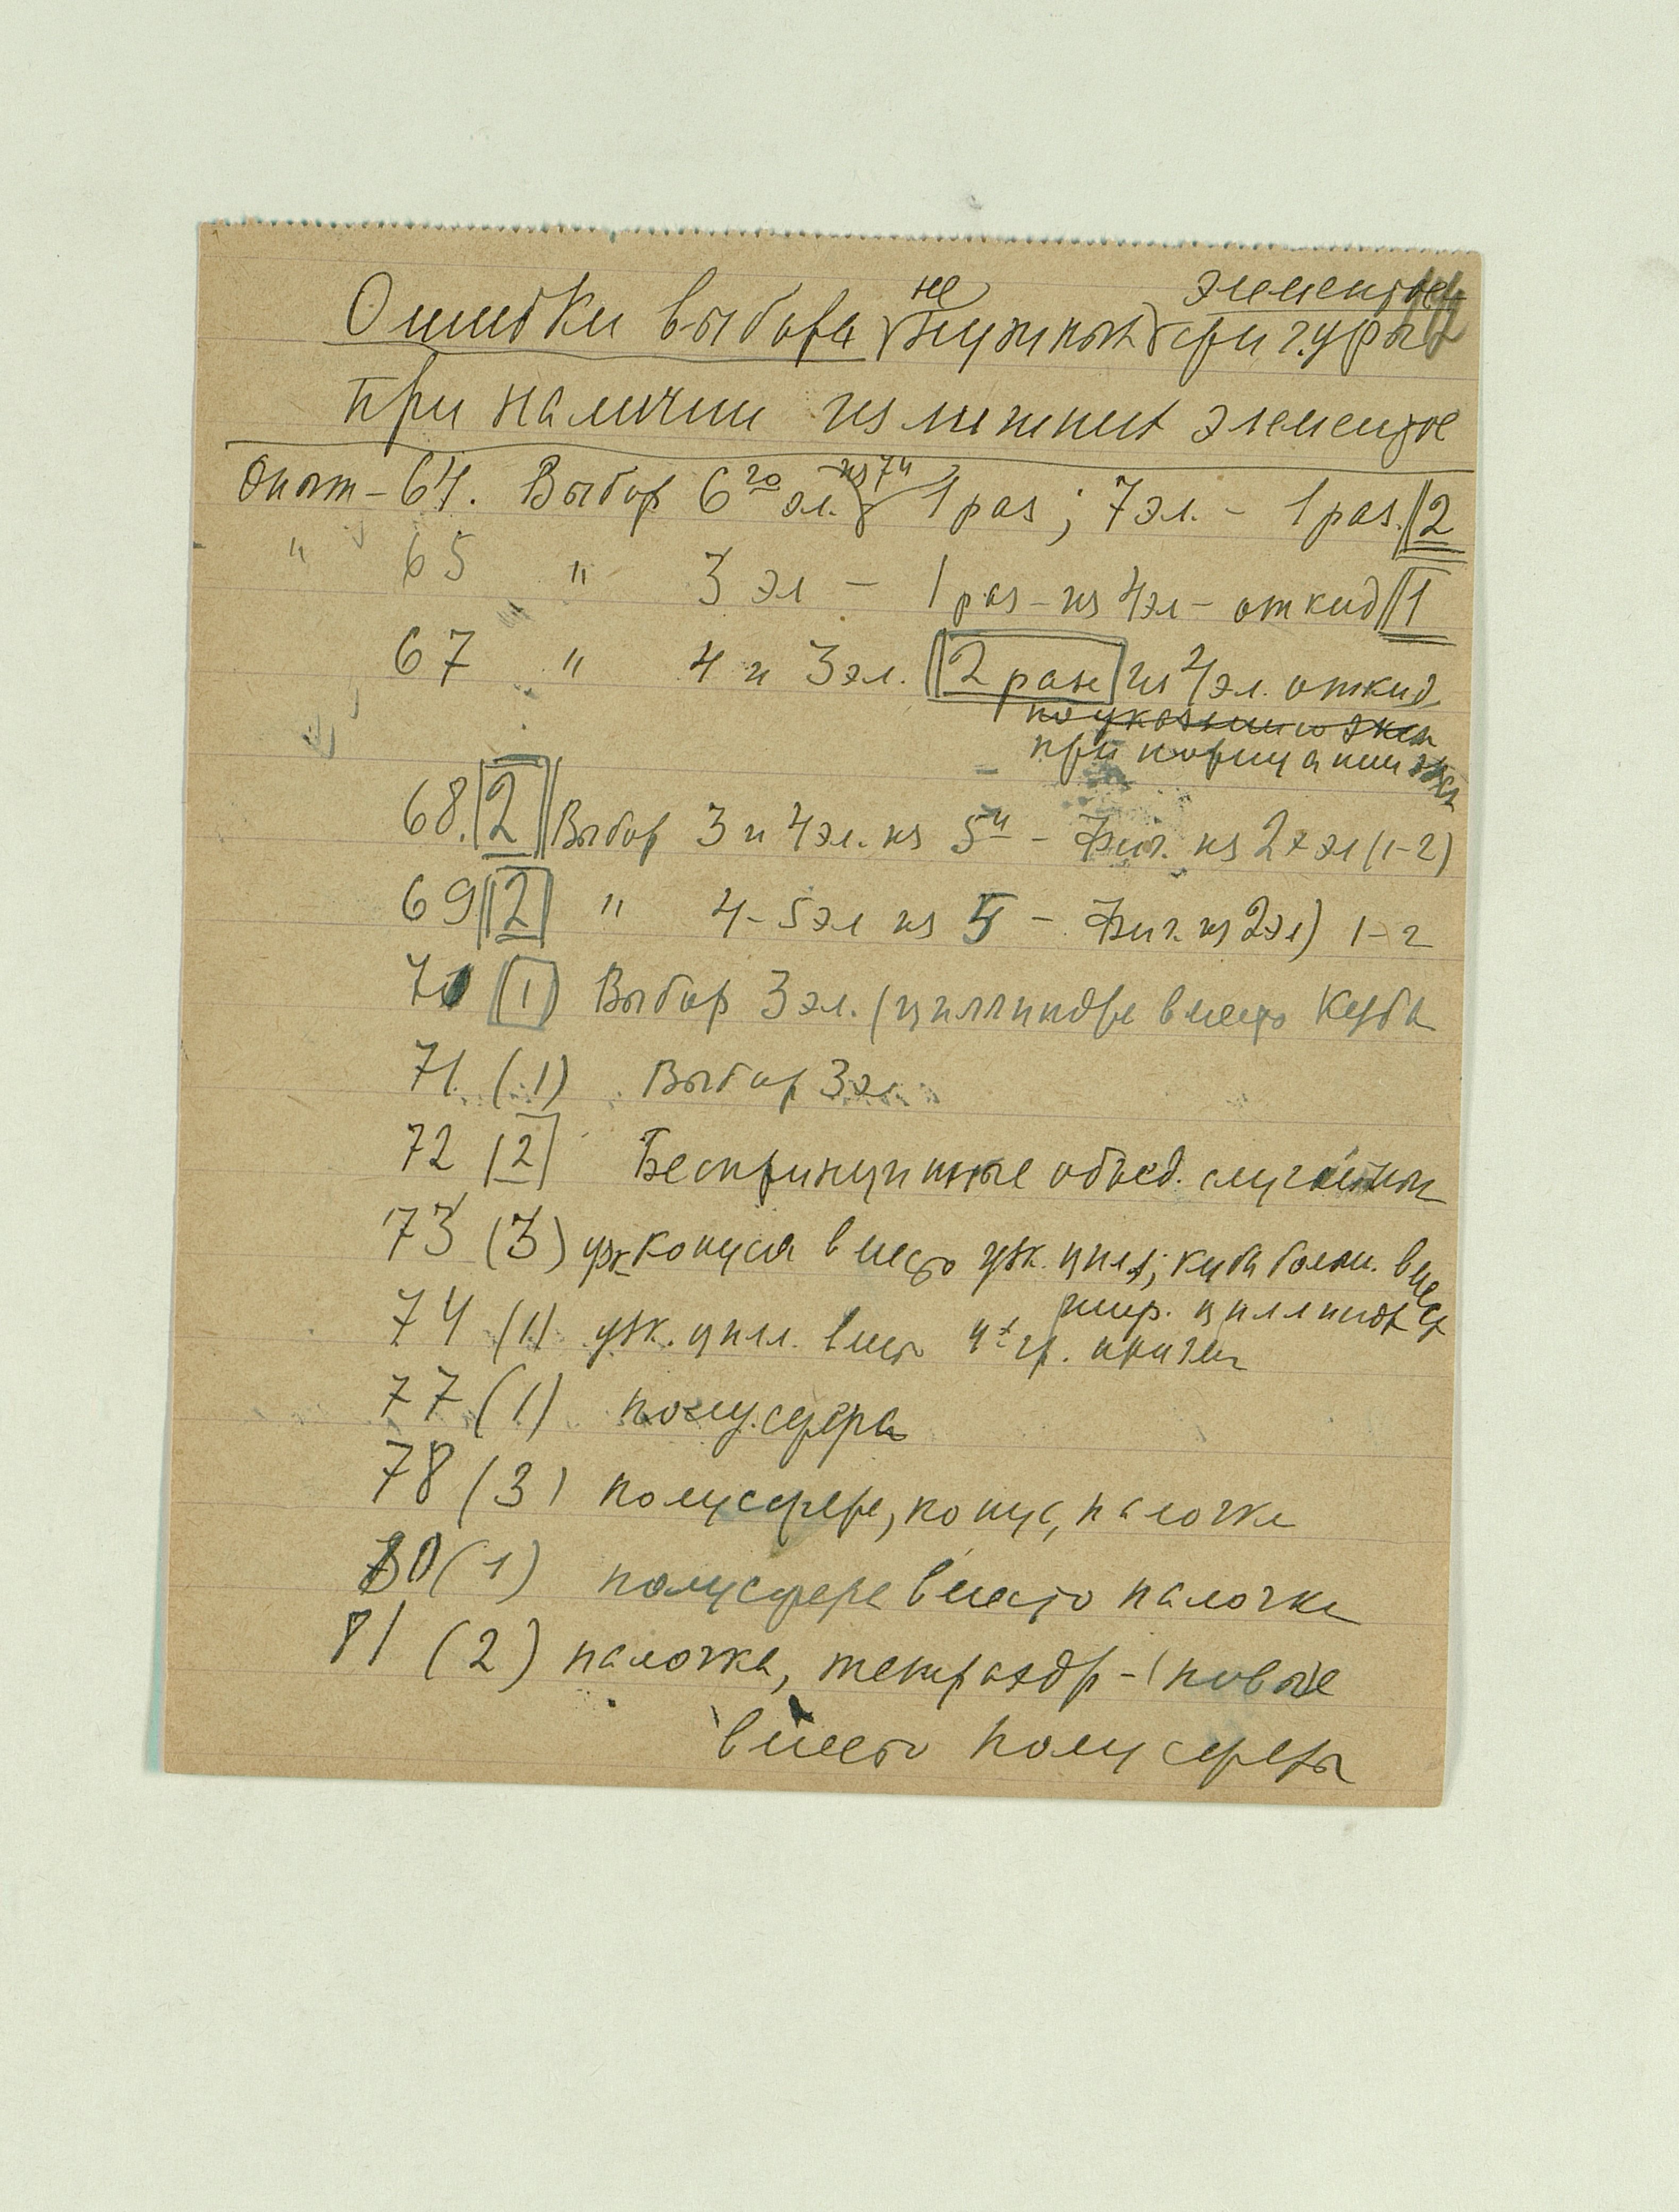 Ошибки выбора не нужных элементов фигуры
при наличии излишних элементов
Опыт - 64. Выбор 6го эл. из 7и 1 раз; 7 эл. - 1 раз. 2
" 65 " 3 эл - 1 раз - из 4 эл - откид 1
67 " 4 и 3 эл. 2 раза из 4 эл. откид.
по указанию эксп
при порицании эксп
68. 2 Выбор 3 и 4 эл. из 5и - Фиг. из 2х эл (1-2)
69 2 " 4-5 эл из 5 - Фиг. из 2 эл) 1-2
70 (1) Выбор 3 эл. (циллиндра вместо Куба
71. (1) Выбор 3 эл.
72 (2) Беспринципные объед. случайных
73 (3) уж конуса вместо уж. цил.; куба больш. вмест
шир. циллиндра
74 (1) уж. цилл. вместо 4х гр. призмы
77 (1) полусфера
78 (3) полусфера, конус, палочка
80 (1) полусфера вместо палочки
81 (2) палочка, тетраэдр - (новые
вместо полусферы